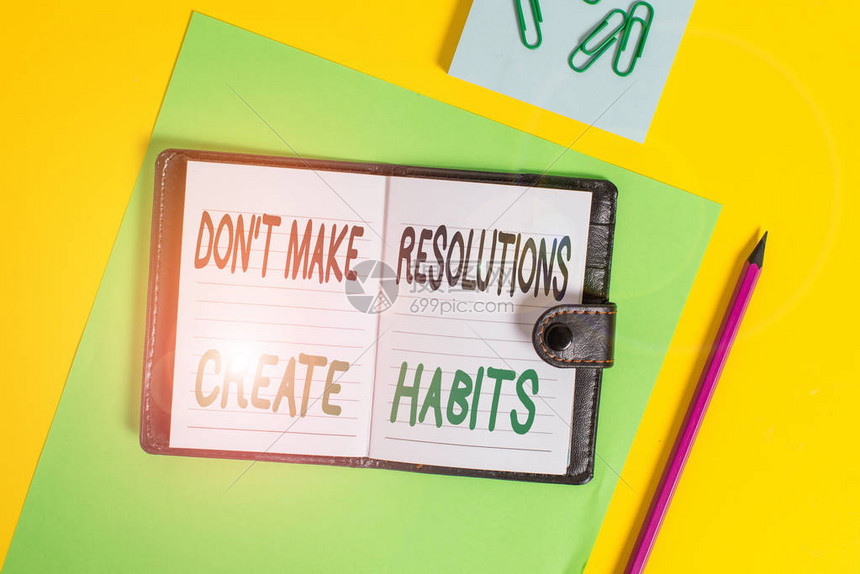 DON'T MAKE RESOLUTIONS
CREATE HABITS
摄图网
699pic.com